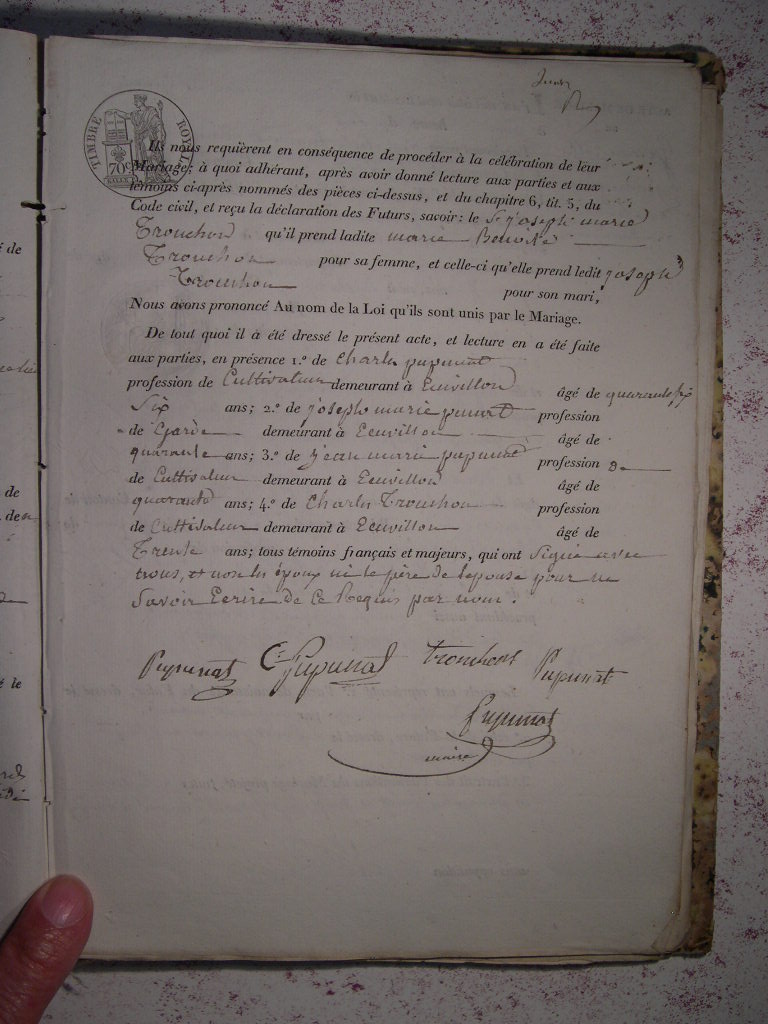 TIMBRE ROYAL
70c
Ils nous requièrent en conséquence de procéder à la célébration de leur
Mariage; à quoi adhérant, après avoir donné lecture aux parties et aux
témoins ci-après nommés des pièces ci-dessus, et du chapitre 6, tit. 5, du
Code civil, et reçu la déclaration des Futurs, savoir: le Sr joseph marie
Trouchon qu'il prend ladite marie Benoite
Trouchon pour sa femme, et celle-ci qu'elle prend ledit joseph
Trouchon pour son mari,
Nous avons prononcé Au nom de la Loi qu'ils sont unis par le Mariage.
De tout quoi il a été dressé le présent acte, et lecture en a été faite
aux parties, en présence 1.º de Charles pupunat
profession de Cultivateur demeurant à Ecuvillon âgé de quarante six
Six ans; 2.º de joseph marie profession
de Garde demeurant à Ecuvillon âgé de
quarante ans; 3.º de jean marie pupunat profession De
de Cultivateur demeurant à Ecuvillon âgé de
quarante ans; 4.º de Charles Trouchon profession
de Cultivateur demeurant à Ecuvillon âgé de
Trente ans; tous témoins français et majeurs, qui ont Signé avec
nous, et non les époux ni le père de lepouse pour ne
Savoir Ecrire De Ce Requis par nous.
Pupunat C. Pupunat trouchont Pupunat
Pupunat
maire